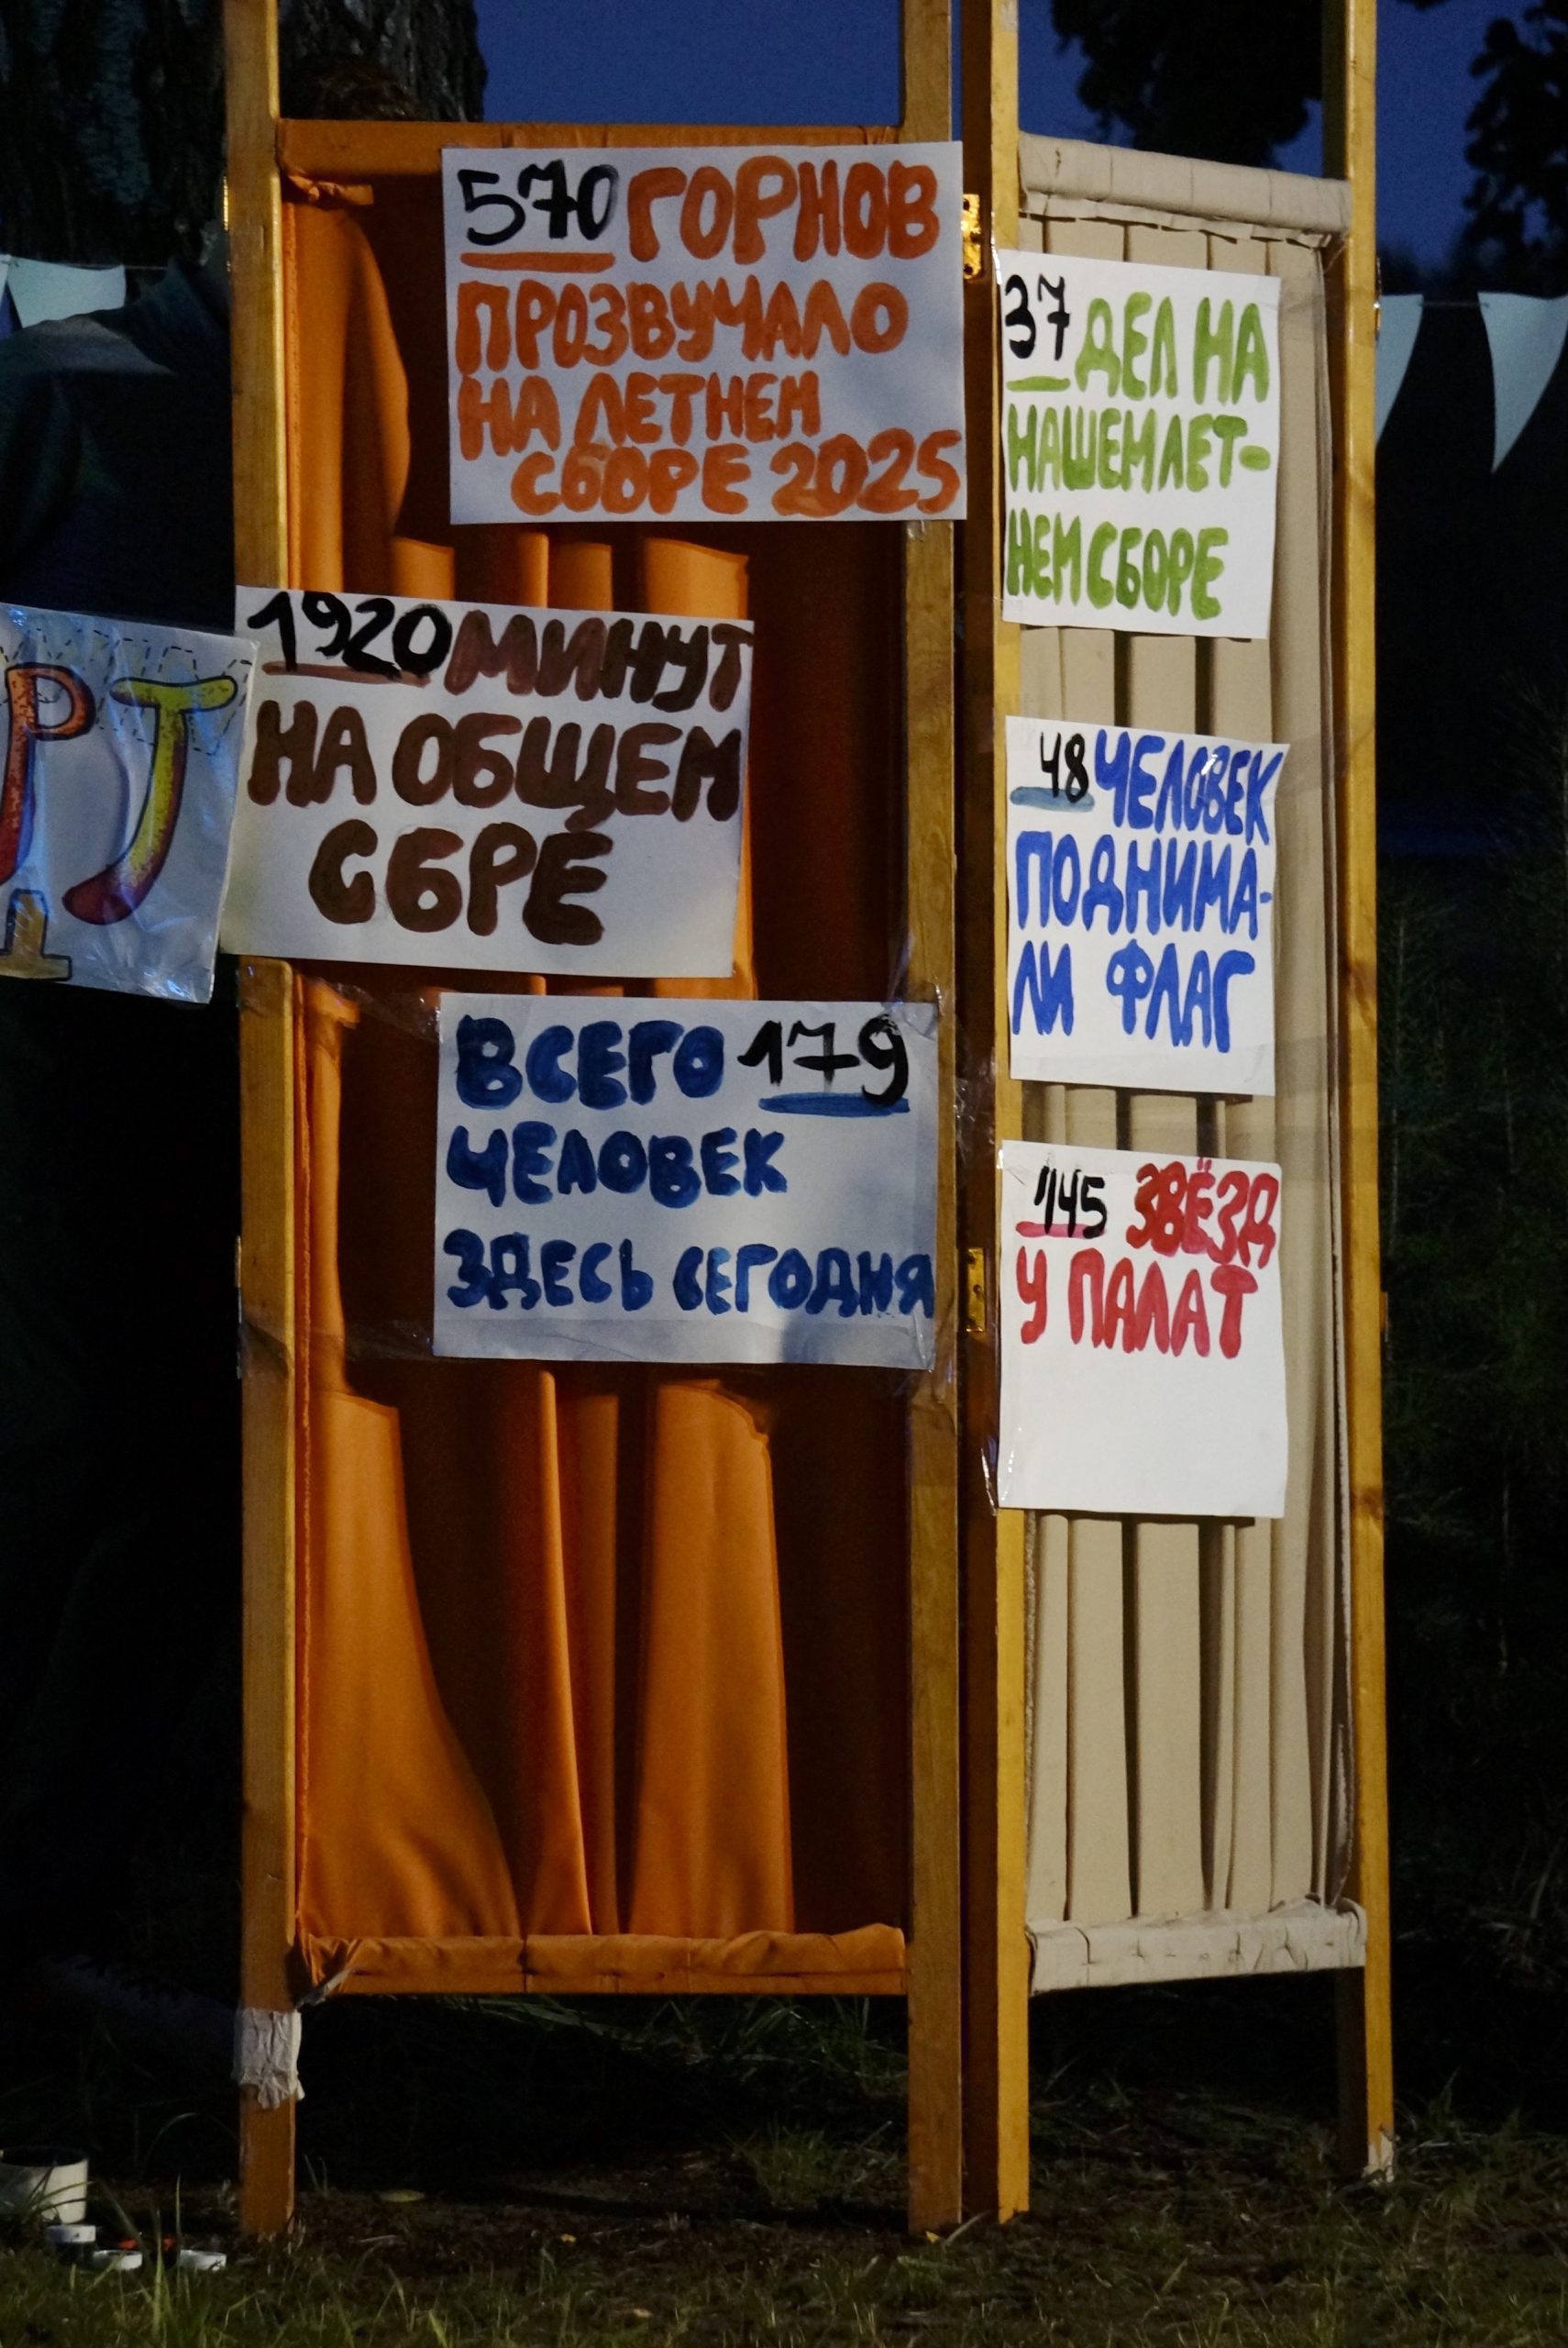 570 ГОРНОВ
ПРОЗВУЧАЛО
НА ЛЕТНЕМ
СБОРЕ 2025
1920 МИНУТ
НА ОБЩЕМ
СБРЕ
ВСЕГО 179
ЧЕЛОВЕК
ЗДЕСЬ СЕГОДНЯ
37 ДЕЛ НА
НАШЕМ ЛЕТ-
НЕМ СБОРЕ
48 ЧЕЛОВЕК
ПОДНИМА-
ЛИ ФЛАГ
145 ЗВЁЗД
У ПАЛАТ
РТ